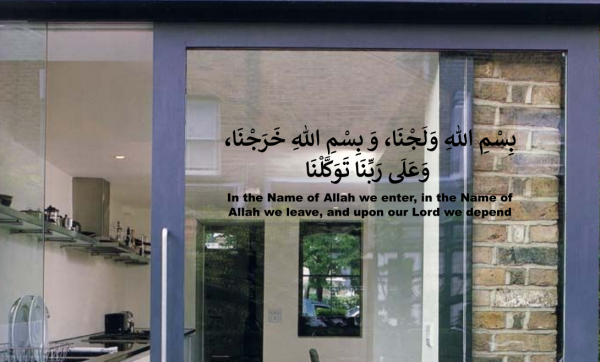 بِسْمِ اللهِ وَلَجْنَا، وَ بِسْمِ اللهِ خَرَجْنَا،
وَعَلَى رَبِّنَا تَوَكَّلْنَا
In the Name of Allah we enter, in the Name of
Allah we leave, and upon our Lord we depend